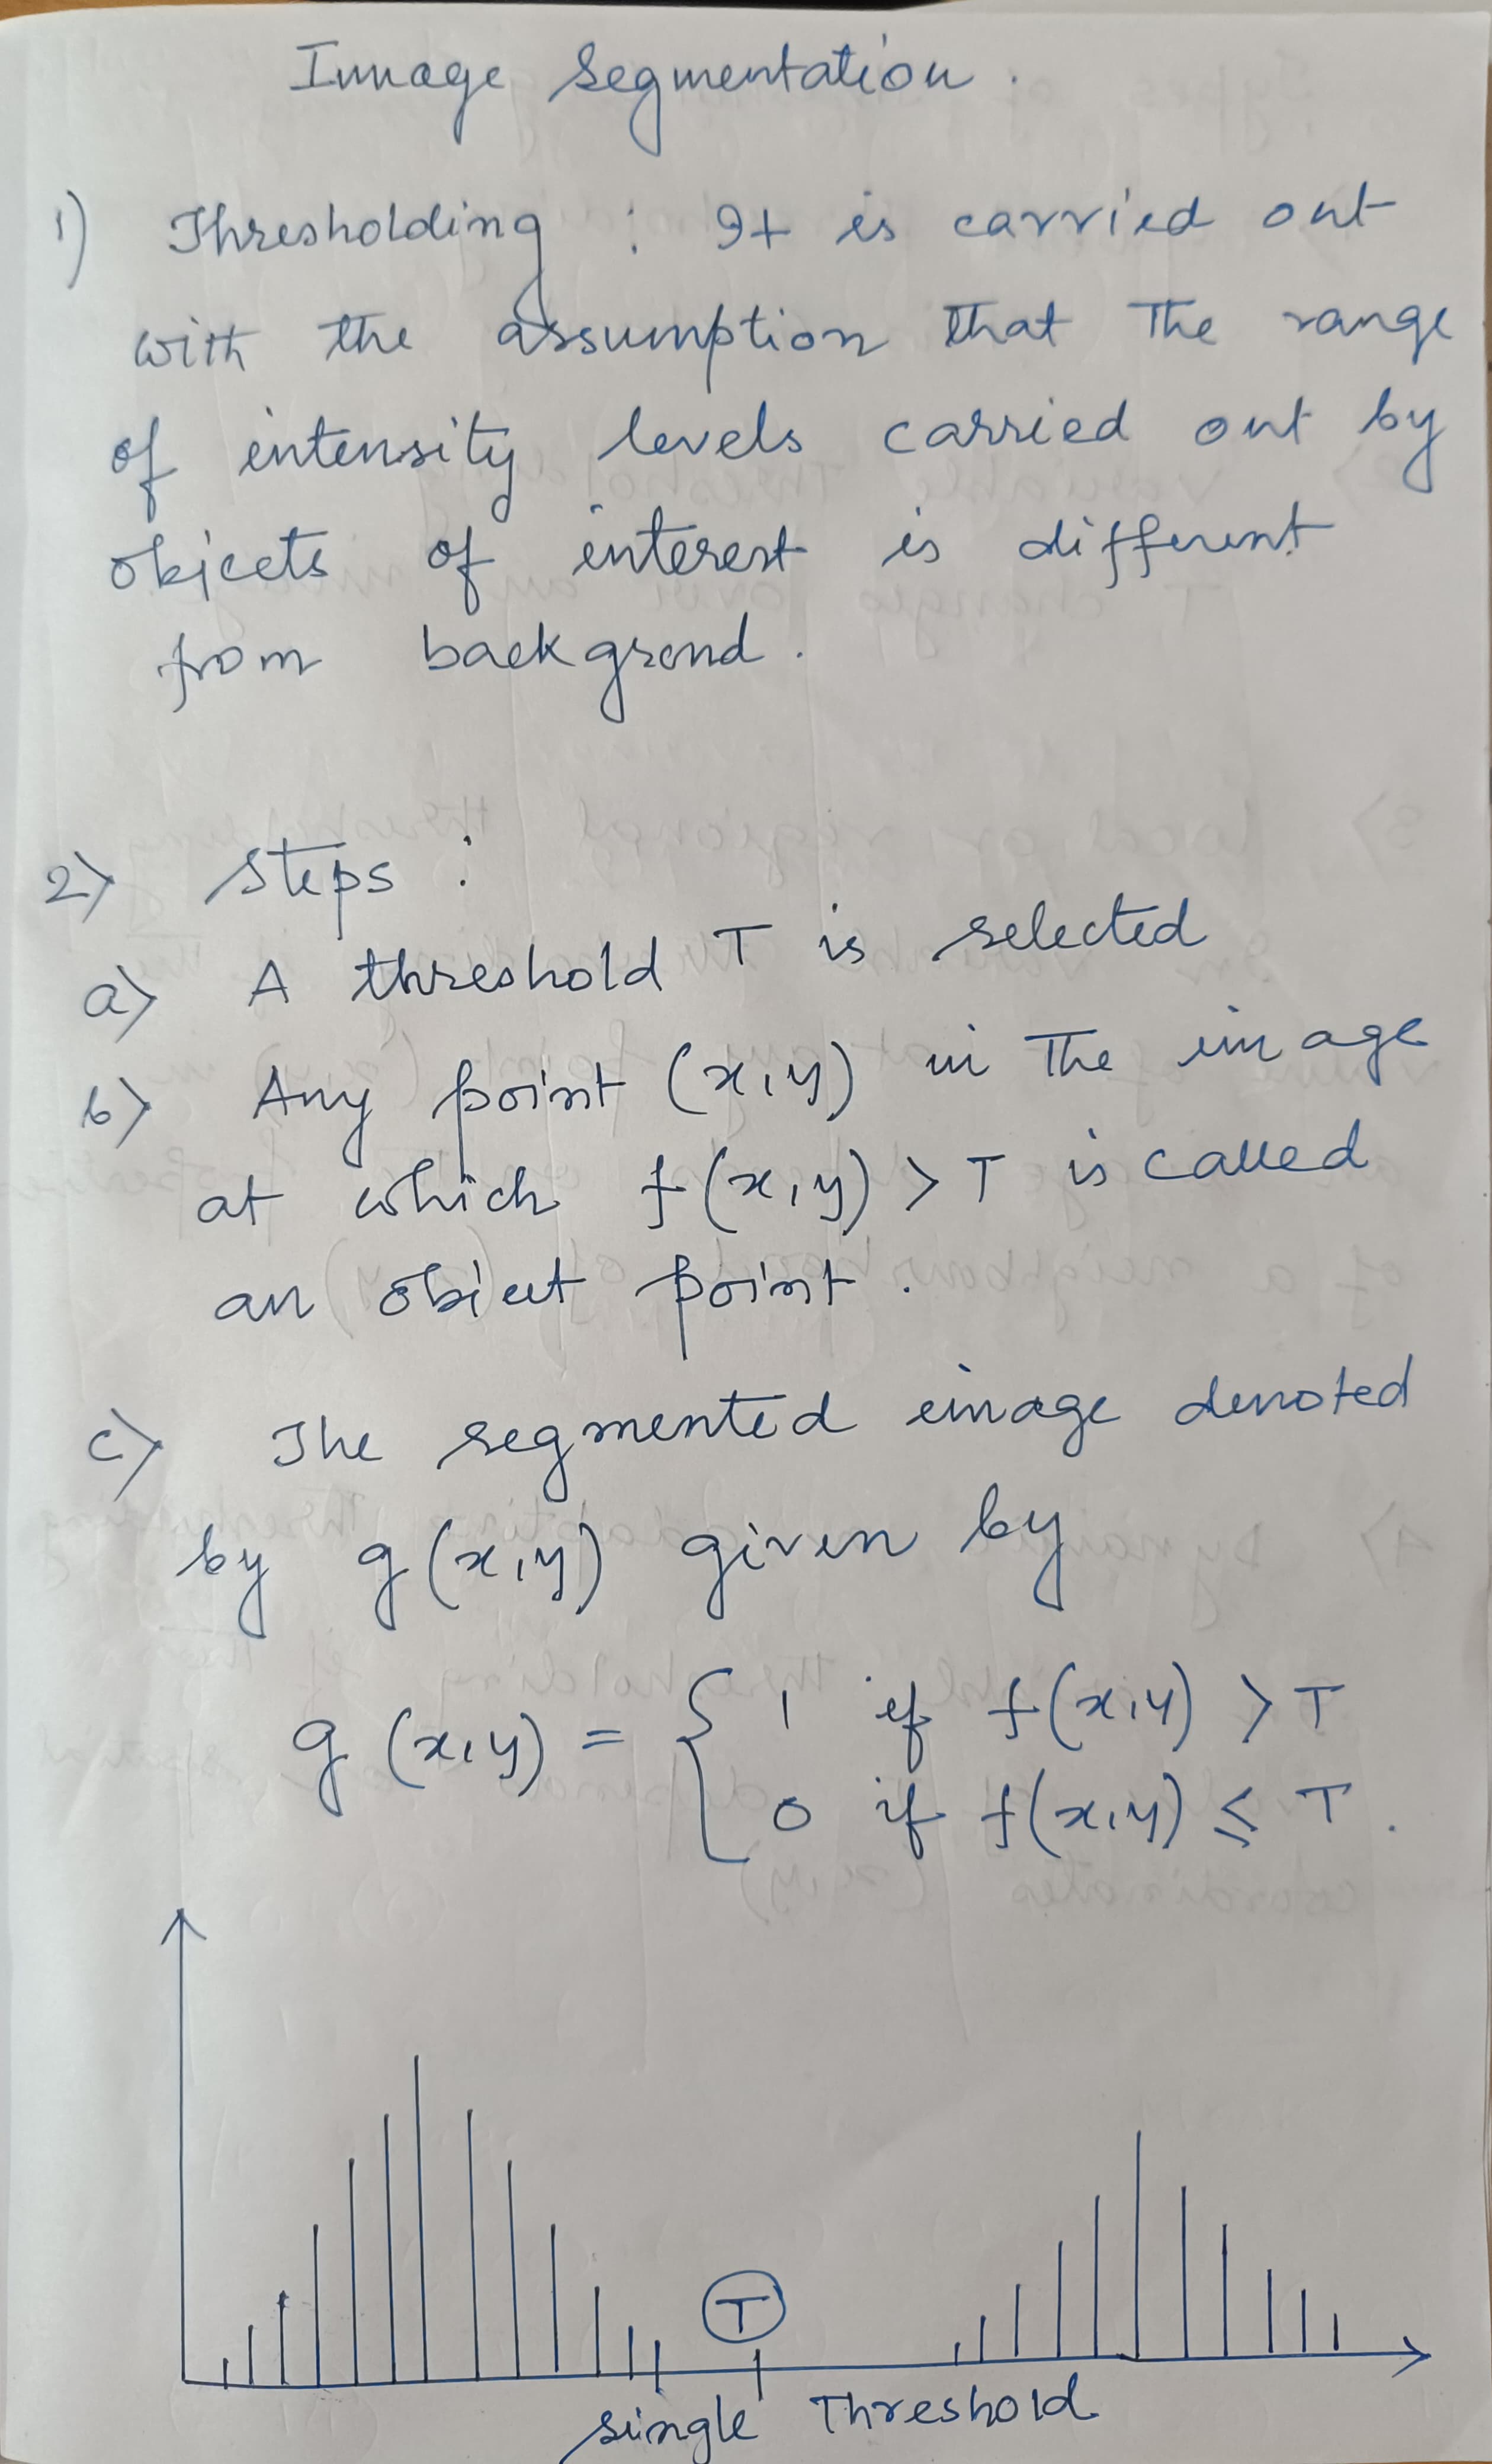 Image Segmentation.
1) Thresholding : It is carried out
with the assumption that the range
of intensity levels carried out by
objects of interest is different
from backgrond.
2) Steps :
a) A threshold T is selected
b) Any point (x,y) in the image
at which f(x,y) > T is called
an object point.
c) The segmented image denoted
by g(x,y) given by
g(x,y) = { 1 if f(x,y) > T
0 if f(x,y) ≤ T.
T
single Threshold